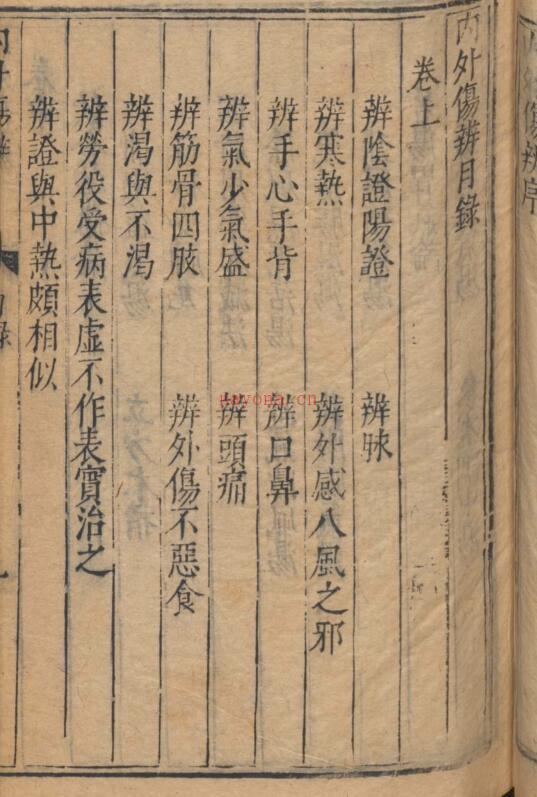 内外傷辨目錄
卷上
辨陰證陽證 辨脉
辨寒熱 辨外感八風之邪
辨手心手背 辨口鼻
辨氣少氣盛 辨頭痛
辨筋骨四肢 辨外傷不惡食
辨渴與不渴
辨勞役受病表虛不作表實治之
辨證與中熱頗相似